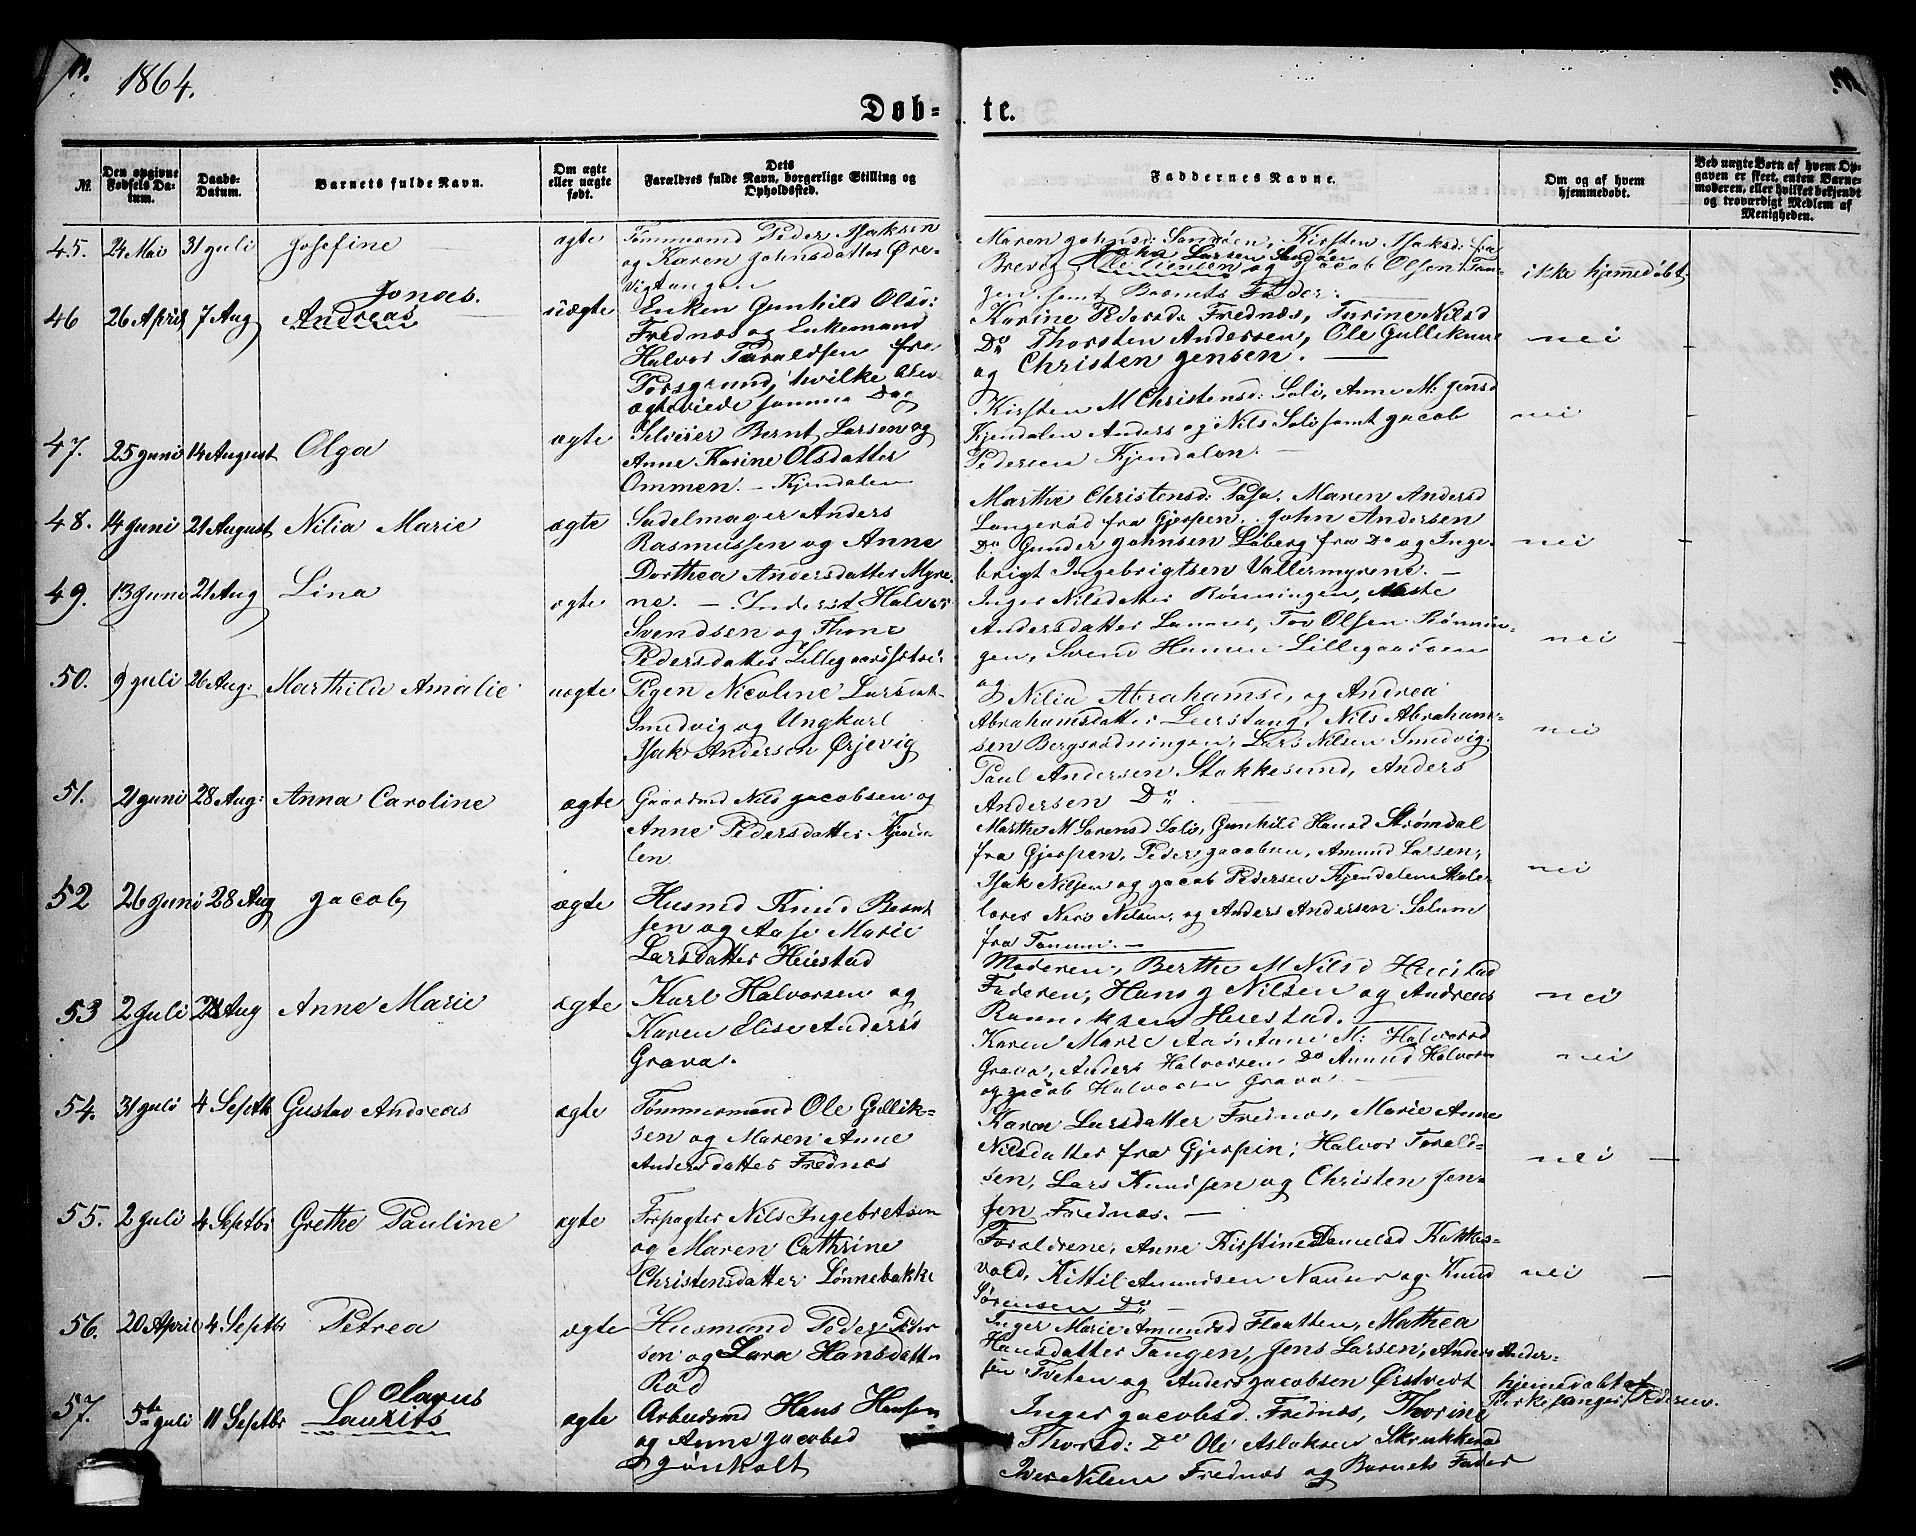 1864.
Døb-
te.
№.
Den opgivne Fødsels Da-tum.
Daabs-Datum.
Barnets fulde Navn.
Om ægte eller uægte født.
Dets Forældres fulde Navn, borgerlige Stilling og Opholdssted.
Faddernes Navne.
Om og af hvem hjemmedøbt.
Ved uægte Børn af hvem Op-gaven er skeet, enten Barne-moderen, eller hvilket bekjendt og troværdigt Medlem af Menigheden.
45. 24 Mai 31 Juli Josefine ægte
Tømmermd Peder Isaksen
og Karen Johnsdatter Øre-
vigtangen
Maren Johnsd: Sandøen, Kirsten Isaksd: fra
John Larsen Sandøen
Brevig, og Jacob Olsen Tan-
gen samt Barnets Fader.
ikke hjemedøbt
46 26 April 7 Aug Jonas.
Andreas uægte
Enken Gunhild Olsd:
Frednæs og Enkemand
Halvor Taraldsen fra
Porsgrund, hvilke blev
ægteviede samme Dag
Karine Pedersd: Frednæs, Turine Nilsd
Do Thorsten Andersen, Ole Gulliksen
og Christen Jensen.
nei
47. 25 Juni 14 August Olga ægte
Selveier Bernt Larsen og
Anne Karine Olsdatter
Ommen. - Kjendalen
Kirsten M Christensd: Soli, Anne M: Jensd
Kjendalen Anders og Nils Soli samt Jacob
Pedersen Kjendalen.
nei
48. 14 Juni 21 August Nilia Marie ægte
Sadelmager Anders
Rasmussen og Anne
Dorthea Andersdatter Myre-
ne.
Marthe Christensd: Maren Andersd
Langerød fra Gjerpen. John Andersen
Do Gunder Johnsen Løberg fra Do og Inge-
brigt Ingebrigtsen Vallermyrene.
nei
49. 13 Juni 21 Aug Lina ægte
- Inderst Halvor
Svendsen og Thone
Pedersdatter
Inger Nilsdatter Rønningen, Aaste
Andersdatter Lanner, Tov Olsen Rønnin-
gen, Svend Hansen Lillegaarden
nei
50. 9 Juli 26 Aug: Marthilde Amalie uægte
Pigen Nicoline Larsdt.
Smedvig og Ungkarl
Isak Andersen Ørjevig
og Nilia Abrahamsd, og Andrea
Abrahamsdatter Leerstang, Nils Abraham-
sen Bergsbødningen, Lars Nilsen Smedvig.
Paul Andersen Stokkesund, Anders
Andersen Do.
nei
51. 21 Juni 28 Aug: Anna Caroline ægte
Gaardmd Nils Jacobsen og
Anne Pedersdatter Kjenda-
len
Marthe M Sørensd Soli, Gunhild Hansd Strømdal
fra Gjerpen, Peder Jacobsen, Amund Larsen,
Isak Nilsen og Jacob Pedersen Kjendalen Skole-
lærer Nils Nilsen, og Anders Andersen Solum
fra Tanum.
nei
52 26 Juni 28 Aug Jacob ægte
Husmd Knud Bernt
sen og Aase Marie
Larsdatter Heistad
Moderen, Berthe M Nilsd Heistad
Faderen, Hans J Nilsen og Andreas
Heiestad.
nei
53 2 Juli 28 Aug Anne Marie ægte
Karl Halvorsen og
Karen Elise Andersd
Grava.
Karen Marie Aas, Anne M: Halvorsd
Grava, Anders Halvorsen Do Amund Halvors
og Jacob Halvorsen Grava.
nei
54. 31 Juli 4 Septb Gustav Andreas ægte
Tømmermand Ole Gullik-
sen og Maren Anne
Andersdatter Frednæs
Karen Larsdatter Frednæs, Marie Anne
Nilsdatter fra Gjerpen; Halvor Torald-
sen, Lars Knudsen og Christen Jen-
sen Frednæs.
nei
55. 2 Juli 4 Septbr Grethe Pauline ægte
Forpagter Nils Ingebretsen
og Maren Cathrine
Christensdatter Lønnebakke
Forældrene, Anne Kirstine Danielsd Kokkes-
vold, Kittil Amundsen Nauser og Knud
Sørensen Do
nei
56. 20 April 4 Septbr Petrea ægte
Husmand Peder Peder
sen og Lara Hansdatter
Rød
Inger Marie Amundsd Flaatten, Mathea
Hansdatter Tangen, Jens Larsen, Anders Ander-
sen Tveten og Anders Jacobsen Ørstvedt
57. 5te Juli 11 Septbr Olavus
Laurits ægte
Arbeidsmd Hans Hansen
og Anne Jacobsd
Jønholt
Inger Jacobsd. Frednæs, Thorine
Thorsd: Do Ole Aslaksen Skrukkerød
Iver Nilsen Frednæs og Barnets Fader
hjemedøbt af
Kirkesanger Pedersen.